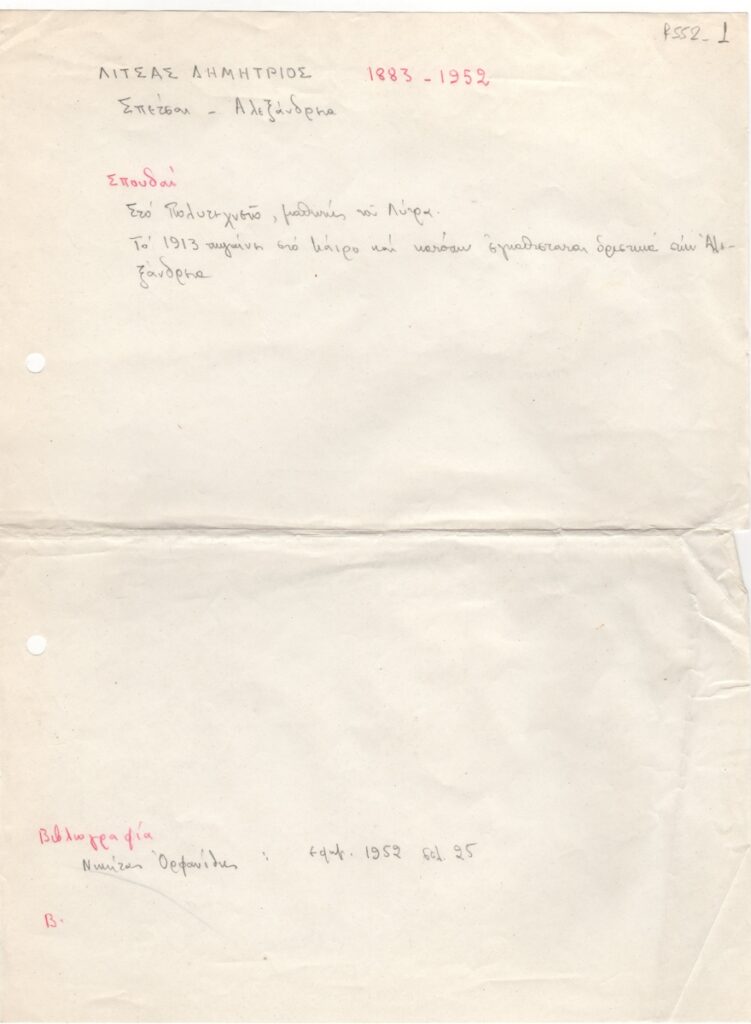 R552_1
ΛΙΤΣΑΣ ΔΗΜΗΤΡΙΟΣ 1883 - 1952
Σπέτσαι - Αλεξάνδρεια
Σπουδαί
Στό Πολυτεχνεῖο, μαθητής τοῦ Λύτρα.
Τό 1913 πηγαίνει στό Κάιρο καί κατόπιν ἐγκαθίσταται ὁριστικά στήν Ἀλε-
ξάνδρεια
Βιβλιογραφία
Νικήτας Ὀρφανίδης : 1952 σελ. 25
Β.